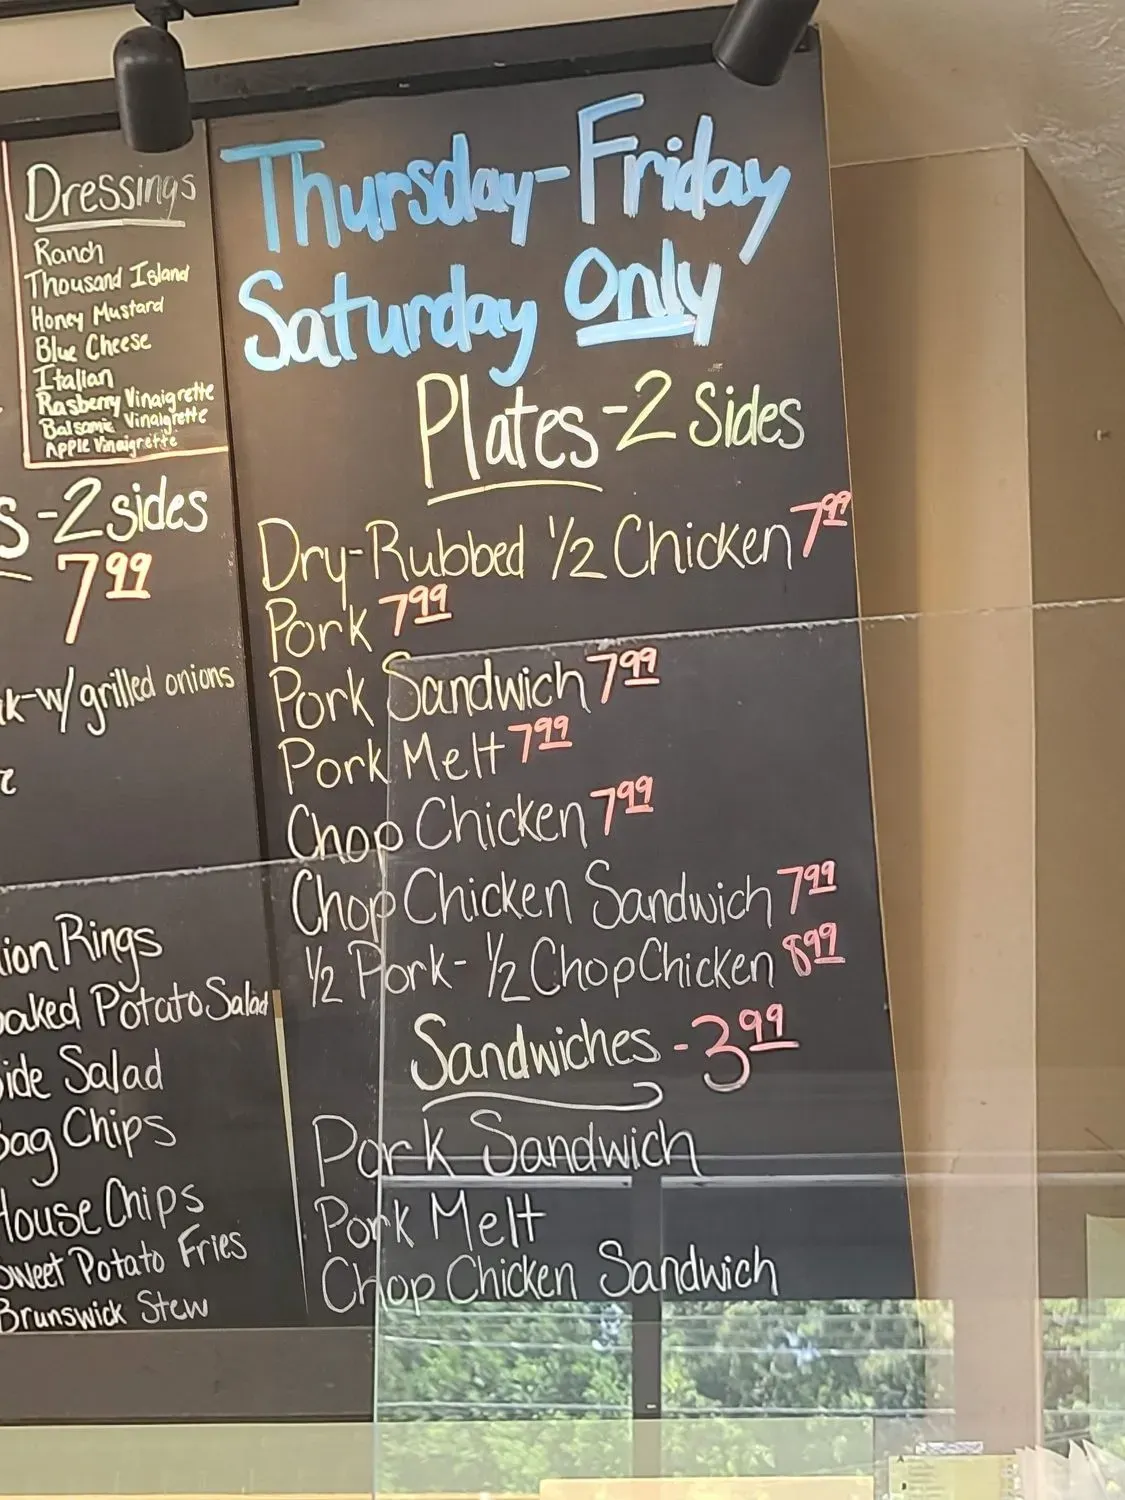 Dressings
Ranch
Thousand Island
Honey Mustard
Blue Cheese
Italian
Rasberry Vinaigrette
Balsamic Vinaigrette
Apple Vinaigrette
s - 2 sides
7.99
k-w/grilled onions
ion Rings
oaked Potato Salad
ide Salad
Bag Chips
House Chips
Sweet Potato Fries
Brunswick Stew
Thursday-Friday
Saturday Only
Plates - 2 Sides
Dry-Rubbed 1/2 Chicken 7.99
Pork 7.99
Pork Sandwich 7.99
Pork Melt 7.99
Chop Chicken 7.99
Chop Chicken Sandwich 7.99
1/2 Pork - 1/2 Chop Chicken 8.99
Sandwiches - 3.99
Pork Sandwich
Pork Melt
Chop Chicken Sandwich